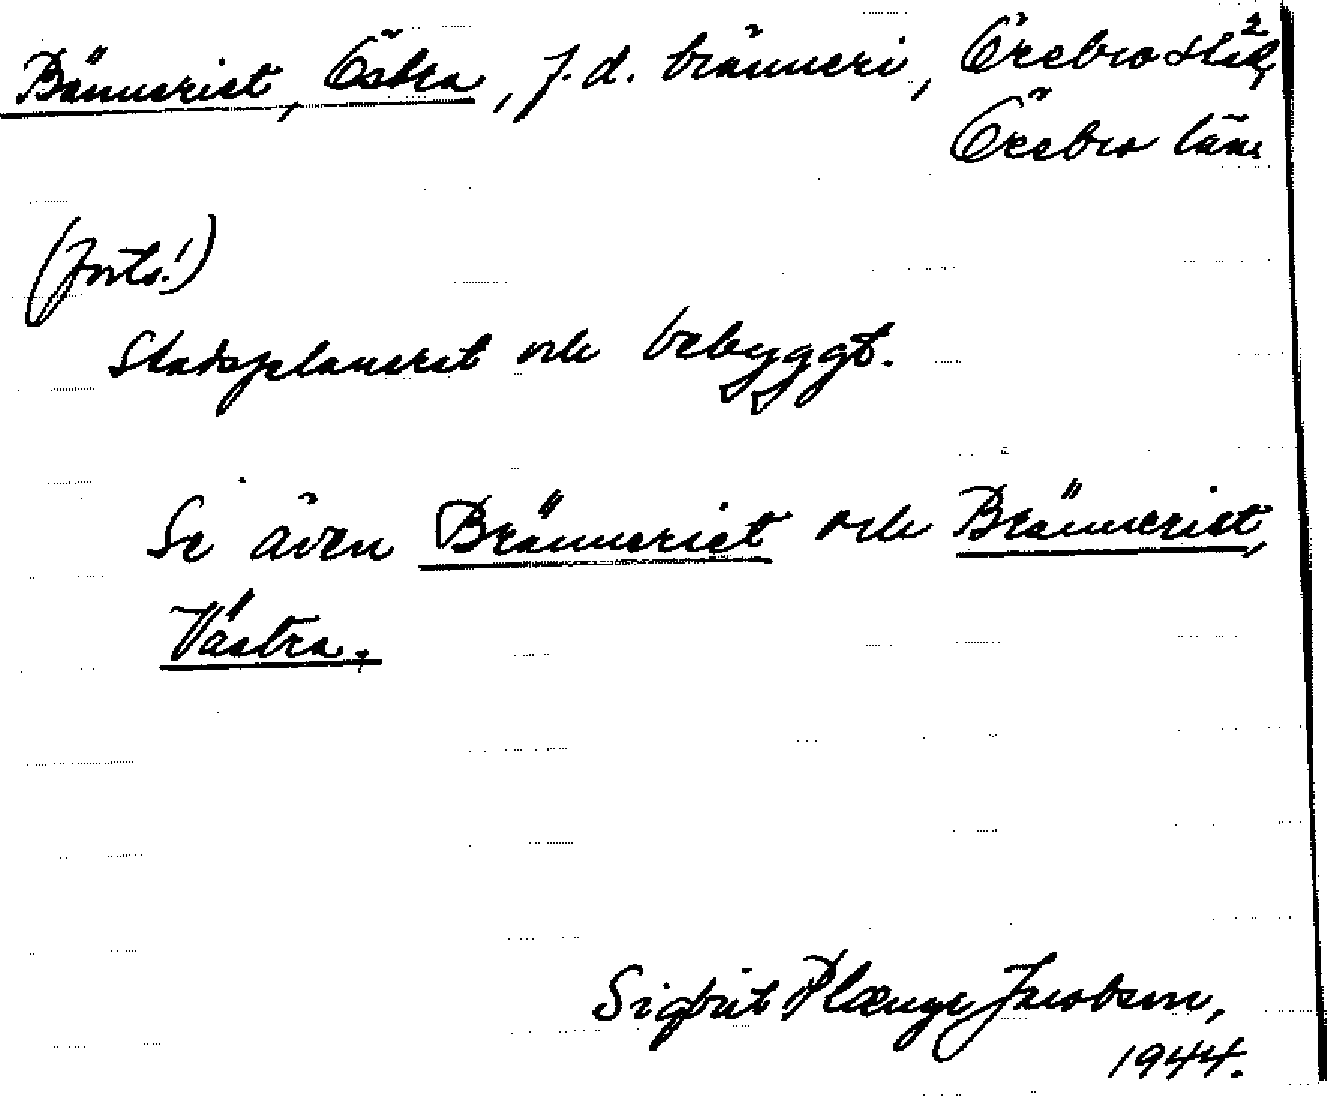 Bränneriet, Östra, f.d. bränneri, Örebro stad,
Örebro län.
(forts.!)
Stadsplanerat och bebyggt.
Se även Bränneriet och Bränneriet,
Västra.
Sigbrit Plænge Jacobson,
1944.